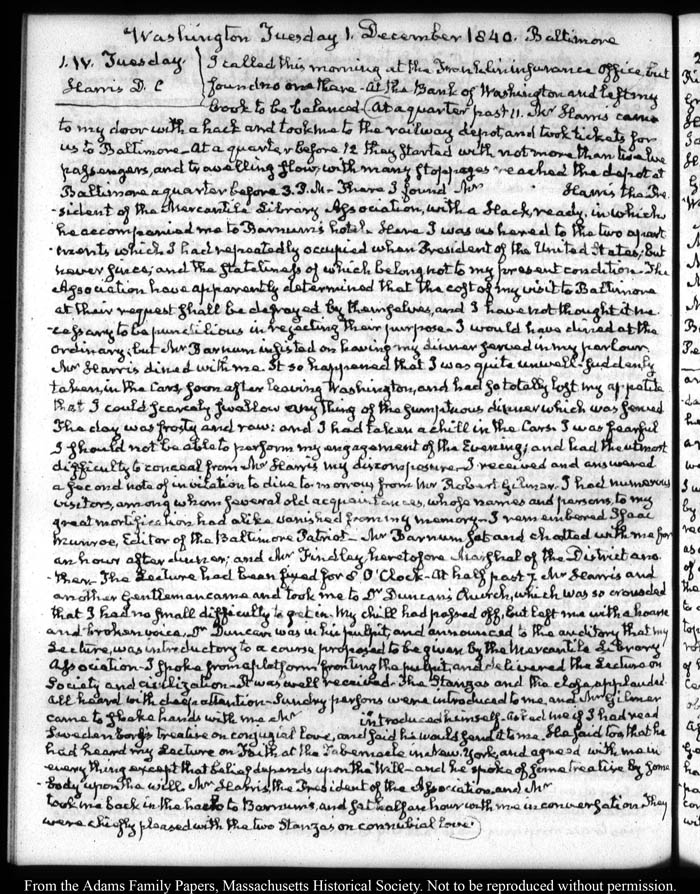 Washington Tuesday 1. December 1840. Baltimore
1. IV. Tuesday.
Harris D. C
I called this morning at the Franklin insurance office, but
found no one there - At the Bank of Washington and left my
book to be balanced. At a quarter past 11. Mr Harris came
to my door with a hack and took me to the railway depot, and took tickets for
us to Baltimore - At a quarter before 12 they started with not more than twelve
passengers, and travelling slow, with many stoppages reached the depot at
Baltimore a quarter before 3. P.M - There I found Mr Harris the Pre-
-sident of the Mercantile Library Association, with a Hack ready, in which
he accompanied me to Barnum's hotel. Here I was ushered to the two apart
-ments which I had repeatedly occupied when President of the United States; but
never since; and the stateliness of which belong not to my present condition - The
Association have apparently determined that the cost of my visit to Baltimore
at their request shall be defrayed by themselves, and I have not thought it ne
-cessary to be punctilious in rejecting their purpose - I would have dined at the
Ordinary; but Mr Barnum insisted on having my dinner served in my parlour
Mr Harris dined with me. It so happened that I was quite unwell - suddenly
taken, in the Cars, soon after leaving Washington, and had so totally lost my appetite
that I could scarcely swallow any thing of the sumptuous dinner which was served
The day was frosty and raw; and I had taken a chill in the Cars. I was fearful
I should not be able to perform my engagement of the Evening; and had the utmost
difficulty to conceal from Mr Harris my discomposure - I received and answered
a second note of invitation to dine to morrow from Mr Robert Gilmor. I had numerous
visitors, among whom several old acquaintances, whose names and persons, to my
great mortification had alike vanished from my memory - I remembered Isaac
Munroe, Editor of the Baltimore Patriot - Mr Barnum sat and chatted with me for
an hour after dinner; and Mr Findley heretofore Marshal of the District ano
-ther - The Lecture had been fixed for 8 O'Clock - At half past 7 Mr Harris and
another Gentleman came and took me to Dr Duncan's Church, which was so crowded
that I had no small difficulty to get in. My chill had passed off, but left me with a hoarse
and broken voice. Dr Duncan was in his pulpit, and announced to the auditory that my
Lecture, was introductory to a course proposed to be given by the Mercantile Library
Association - I spoke from a platform fronting the pulpit, and delivered the Lecture on
Society and civilization - It was well received - The Stanzas and the close applauded
All heard with deep attention - Sundry persons were introduced to me, and Mr Gilmor
came to shake hands with me Mr introduced himself - asked me if I had read
Swedenborg's treatise on conjugial love, and said he would send it to me. He said too that he
had heard my Lecture on Faith at the Tabernacle in New York, and agreed with me in
every thing except that belief depends upon the Will - and he spoke of some treatise by some
-body upon the will. Mr Harris, the President of the Association, and Mr
took me back in the hack to Barnum's, and sat half an hour with me in conversation - They
were chiefly pleased with the two Stanzas on connubial love.
From the Adams Family Papers, Massachusetts Historical Society. Not to be reproduced without permission.